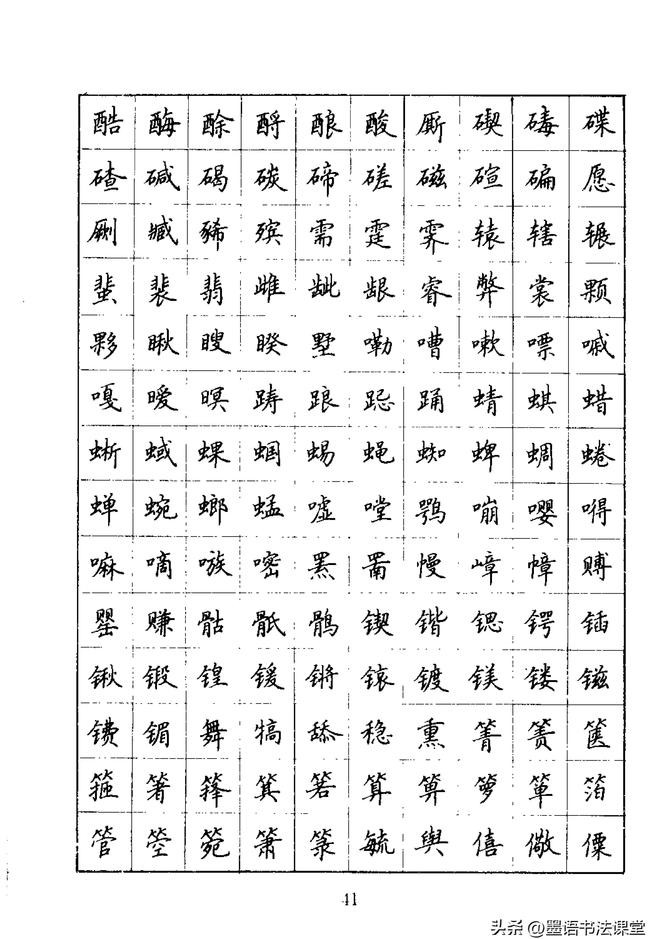 酷 酶 酴 酹 酿 酸 厮 碶 碡 碟
碴 碱 碣 碳 碲 磋 磁 碹 碥 愿
劂 臧 豨 殡 需 霆 霁 辕 辖 辗
蜚 裴 翡 雌 龇 龈 睿 弊 裳 颗
夥 瞅 瞍 睽 墅 嘞 嘈 嗽 嘌 嘁
嘎 暧 暝 踌 踉 跽 踊 蜻 蜞 蜡
蜥 蜮 蜾 蝈 蜴 蝇 蜘 蜱 蜩 蜷
蝉 蜿 螂 蜢 嘘 嘡 鹗 嘣 嘤 嘚
嘛 嘀 嗾 嘧 罴 罱 幔 嶂 幛 赙
罂 赚 骷 骶 鹘 锲 锴 锶 锷 锸
锹 锻 锽 锾 锵 锿 镀 镁 镂 镃
镄 镅 舞 犒 舔 稳 熏 箐 箦 箧
箍 箸 箨 箕 箬 算 箅 箩 箪 箔
管 箜 箢 箫 箓 毓 舆 僖 儆 僳
41
头条 @墨语书法课堂